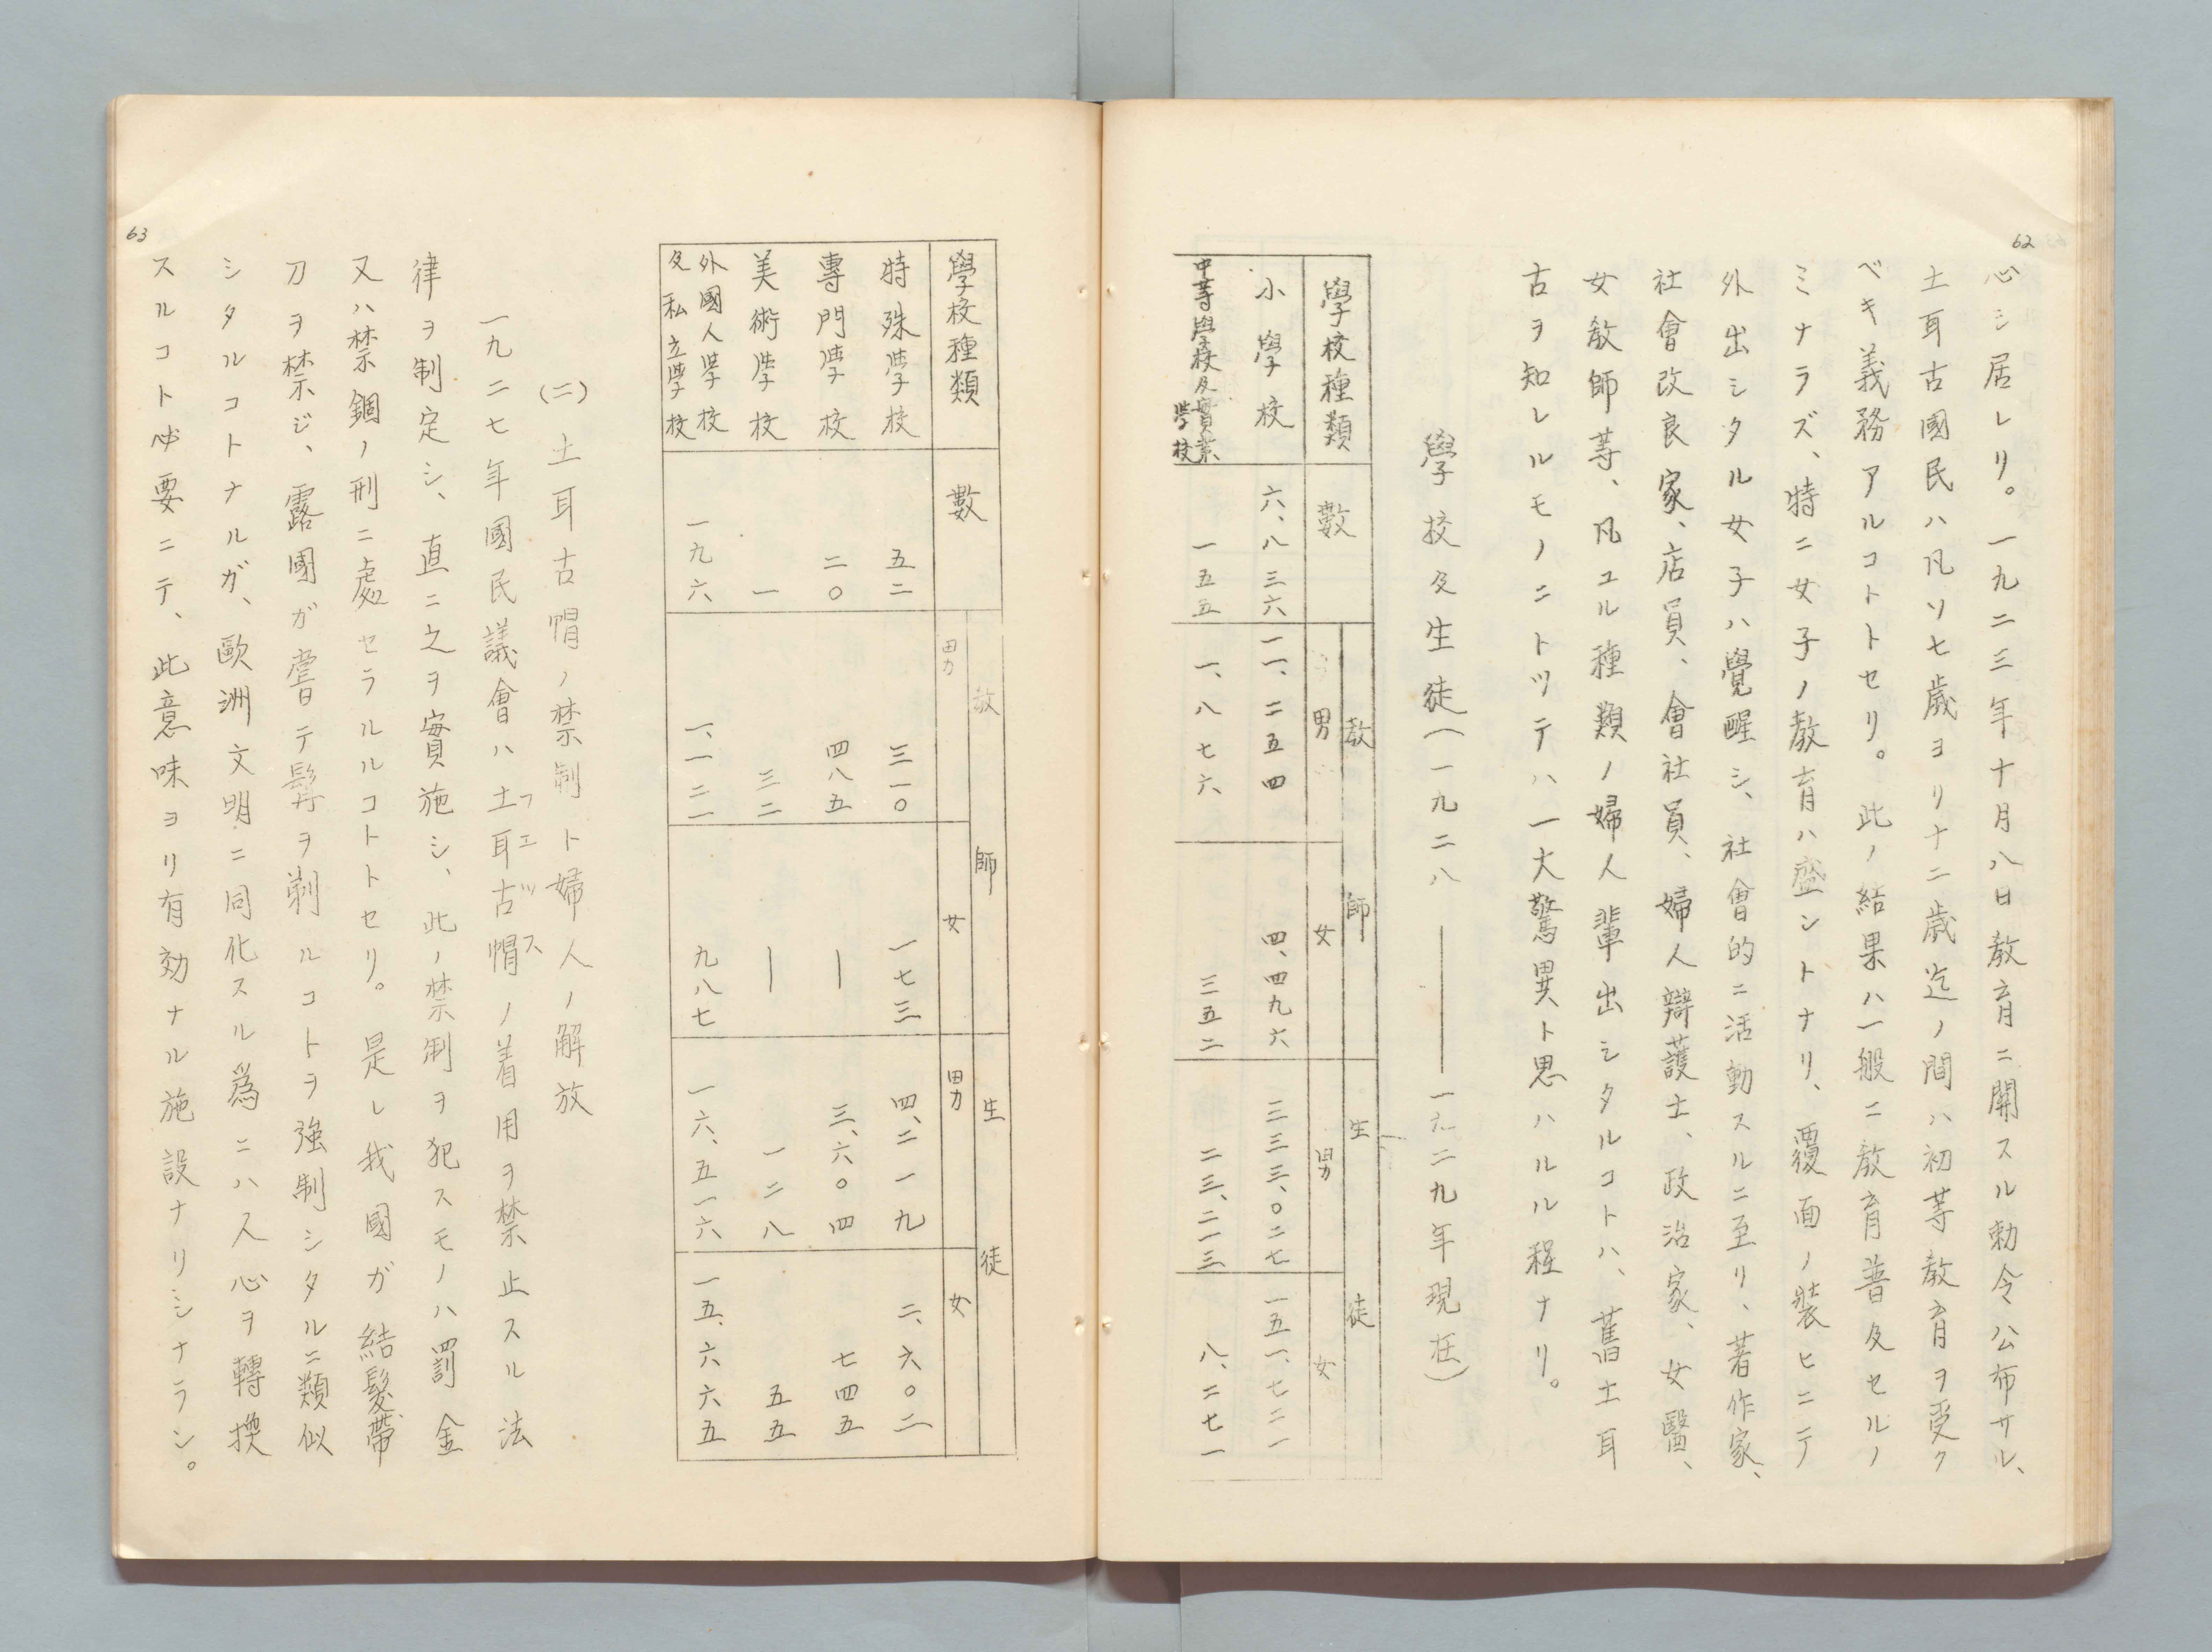 62
心シ居レリ。一九二三年十月八日教育ニ開スル勅令公布サル、
土耳古國民ハ凡ソ七歳ヨリ十二歳迄ノ間ハ初等教育ヲ受ク
ベキ義務アルコトトセリ。此ノ結果ハ一般ニ教育普及セルノ
ミナラズ、特ニ女子ノ教育ハ盛ントナリ、覆面ノ裝ヒニテ
外出シタル女子ハ覺醒シ、社會的ニ活動スルニ至リ、著作家、
社會改良家、店員、會社員、婦人辯護士、政治家、女醫、
女教師等、凡ユル種類ノ婦人輩出シタルコトハ、舊土耳
古ヲ知レルモノニトツテハ一大驚異ト思ハルル程ナリ。
學校及生徒(一九二八——一九二九年現在)
學校種類 數 教師 男 女 生徒 男 女
小學校 六、八三六 一一、二五四 四、四九六 三三三、〇二七 一五一、七二一
中等學校及實業學校 一五五 一、八七六 三五二 二三、二一三 八、二七一
學校種類 數 教師 男 女 生徒 男 女
特殊學校 五二 三一〇 一七三 四、二一九 二、六〇二
專門學校 二〇 四八五 — 三、六〇四 七四五
美術學校 一 三二 — 一二八 五五
外國人學校及私立學校 一九六 一、一二一 九八七 一六、五一六 一五、六六五
(二) 土耳古帽ノ禁制ト婦人ノ解放
一九二七年國民議會ハ土耳古帽フエツスノ着用ヲ禁止スル法
律ヲ制定シ、直ニ之ヲ實施シ、此ノ禁制ヲ犯スモノハ罰金
又ハ禁錮ノ刑ニ處セラルルコトトセリ。是レ我國ガ結髮帶
刀ヲ禁ジ、露國ガ嘗テ髯ヲ剃ルコトヲ強制シタルニ類似
シタルコトナルガ、歐洲文明ニ同化スル爲ニハ人心ヲ轉換
スルコト必要ニテ、此意味ヨリ有効ナル施設ナリシナラン。
63